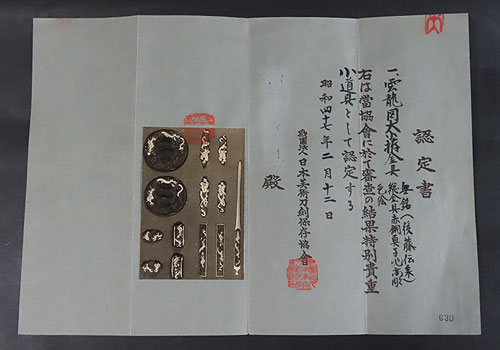 認定書
一、雲龍図大小揃金具
無銘(後藤伝来)
総金具赤銅魚子地高彫
色絵
右は當協會に於て審査の結果特別貴重
小道具として認定する
昭和四十七年二月十二日
財團法人日本美術刀剣保存協會
殿
630